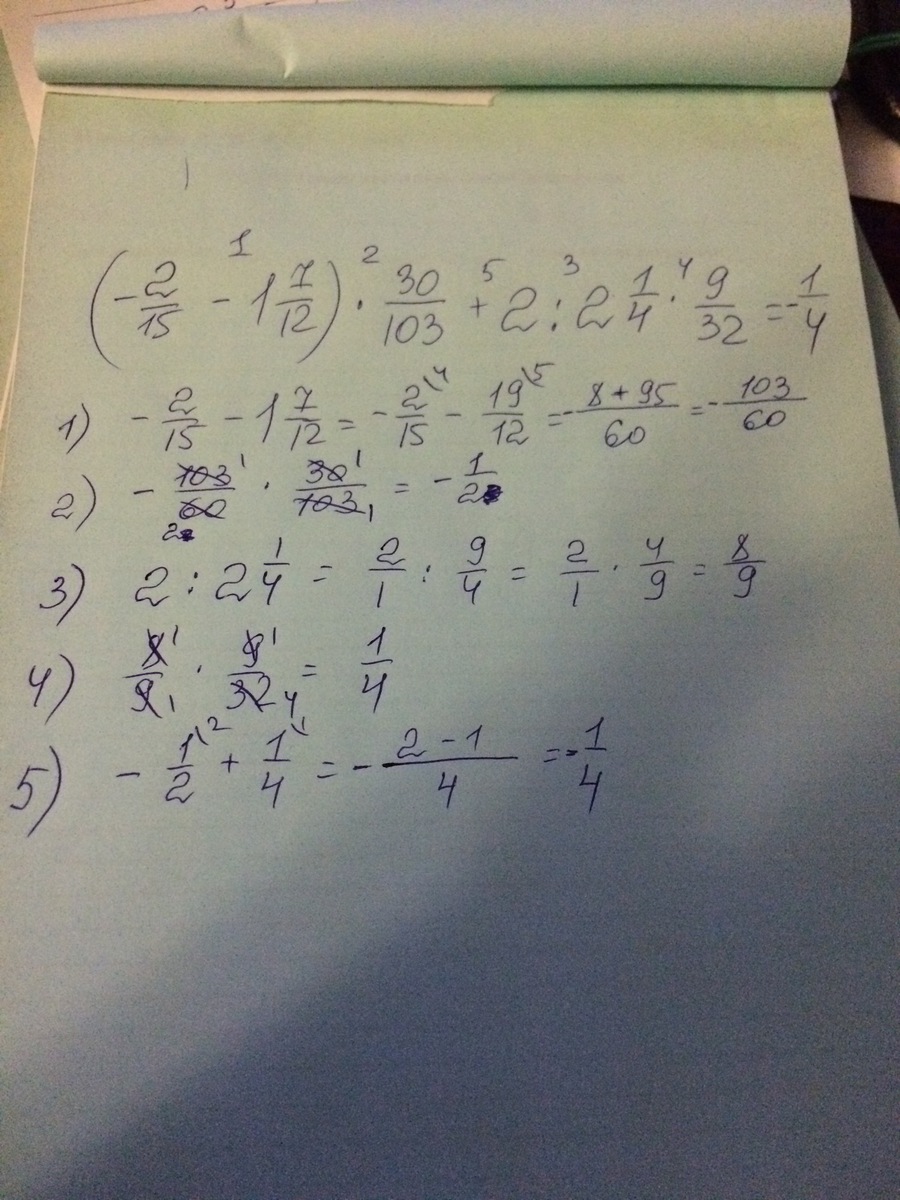 (-2/15 - 1 7/12) · 30/103 + 2 : 2 1/4 · 9/32 = -1/4
1) -2/15 - 1 7/12 = -2/15 - 19/12 = -(8+95)/60 = -103/60
2) -103/60 · 30/103 = -1/2
3) 2 : 2 1/4 = 2/1 : 9/4 = 2/1 · 4/9 = 8/9
4) 8/9 · 9/32 = 1/4
5) -1/2 + 1/4 = -(2-1)/4 = -1/4